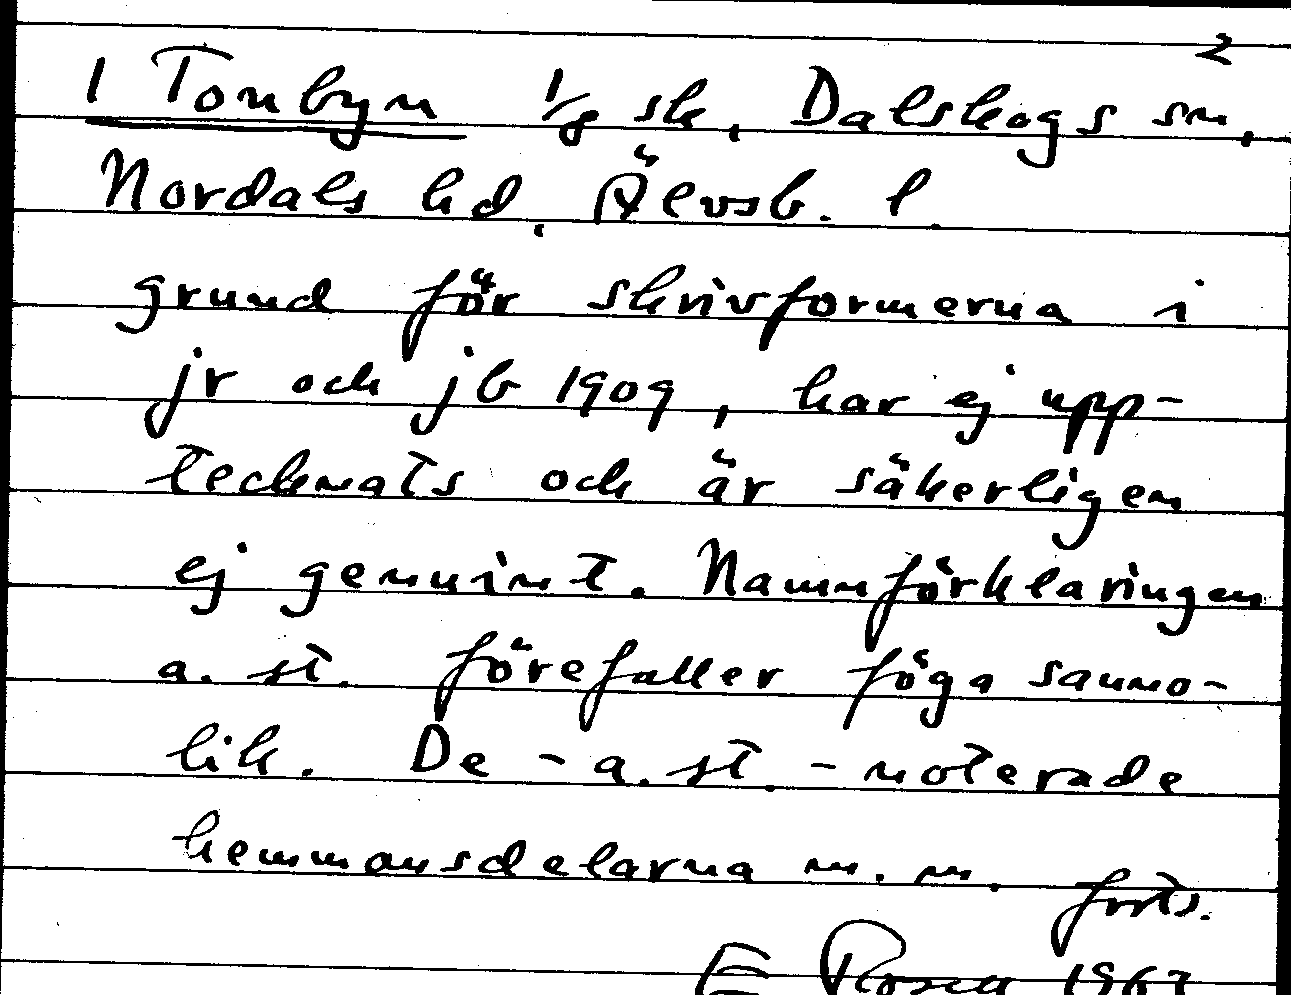 2
1 Tonbyn 1/8 sk, Dalskogs sn,
Nordals hd. Älvsb. l.
grund för skrivformerna i
jr och jb 1909, har ej upp-
tecknats och är säkerligen
ej genuint. Namnförklaringen
a. st. förefaller föga sanno-
lik. De - a. st. - noterade
hemmansdelarna m. m. forts.
E Rosell 1967